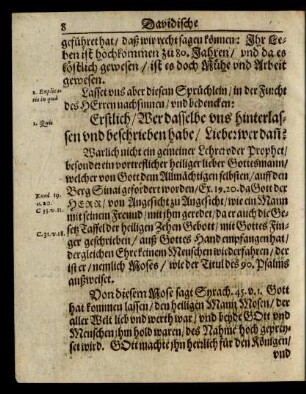 8 Davidische
geführet hat / daß wir recht sagen können: Ihr Le-
ben ist hochkommen zu 80. Jahren / und da es
köstlich gewesen / ist es doch Mühe und Arbeit
gewesen.
2. Explica-
tio in quâ
Lasset uns aber diesem Sprüchlein / in der Furcht
des HErren nachsinnen / und bedencken:
1. Quis
Erstlich / Wer dasselbe uns hinterlas-
sen und beschrieben habe / Liebe: wer dañ?
Warlich nicht ein gemeiner Lehrer oder Prophet /
besonder ein vortrefflicher heiliger lieber Gottesmann /
welcher von Gott dem Allmächtigen selbsten / auff den
Exod. 19.
u. 20.
C. 33. v. 11.
Berg Sinai gefordert worden / Ex. 19. 20. da Gott der
HERR / von Angesicht zu Angesicht / wie ein Mann
mit seinem Freund / mit jhm geredet / da er auch die Ge-
C. 31. v. 18.
setz Taffel der heiligen Zehen Gebott / mit Gottes Fin-
ger geschrieben / auß Gottes Hand empfangen hat /
dergleichen Ehr keinem Menschen wiederfahren / der
ist er / nemlich Moses / wie der Titul des 90. Psalms
außweiset.
Von diesem Mose sagt Syrach. 45. v. 1. Gott
hat kommen lassen / den heiligen Mann Mosen / der
aller Welt lieb und werth war / und beyde GOtt und
Menschen jhm hold waren / des Nahme hoch geprey-
set wird. GOtt machte jhn herrlich für den Königen /
und